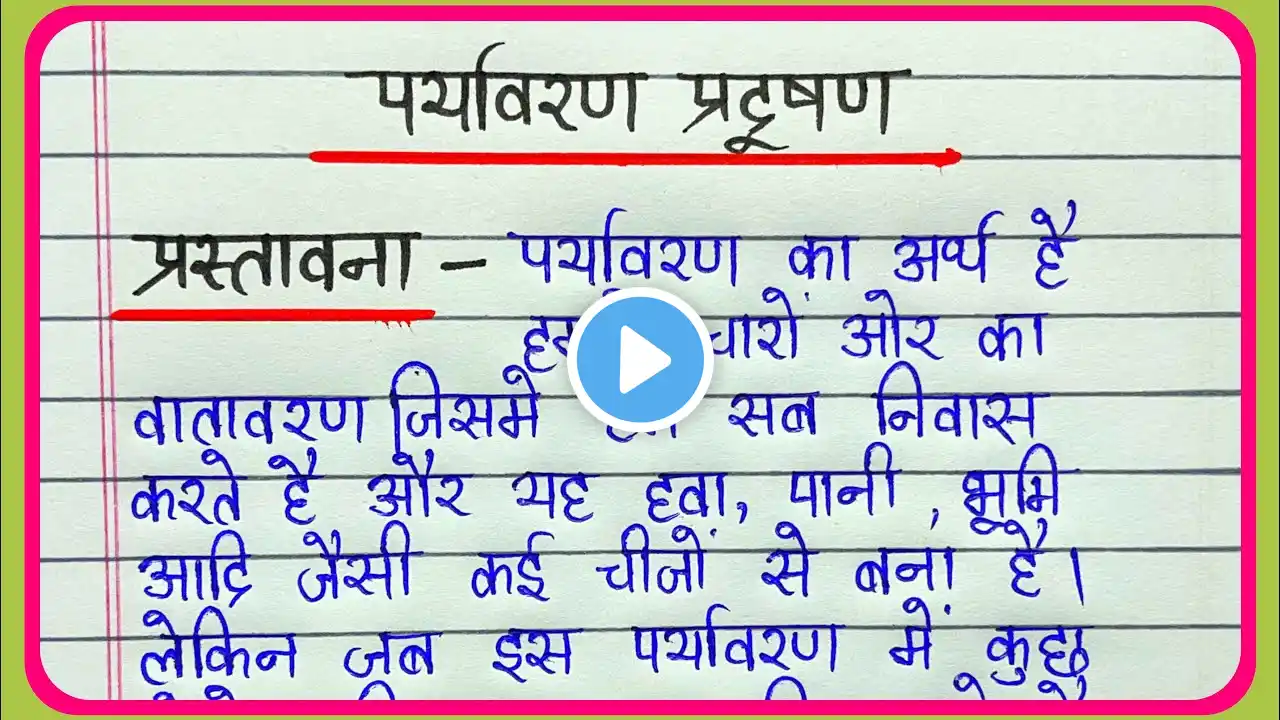 पर्यावरण प्रदूषण
प्रस्तावना – पर्यावरण का अर्थ है
चारों ओर का
वातावरण जिसमे सब निवास
करते है और यह हवा, पानी , भूमि
आदि जैसी कई चीजों से बना है।
लेकिन जब इस पर्यावरण में कुछ